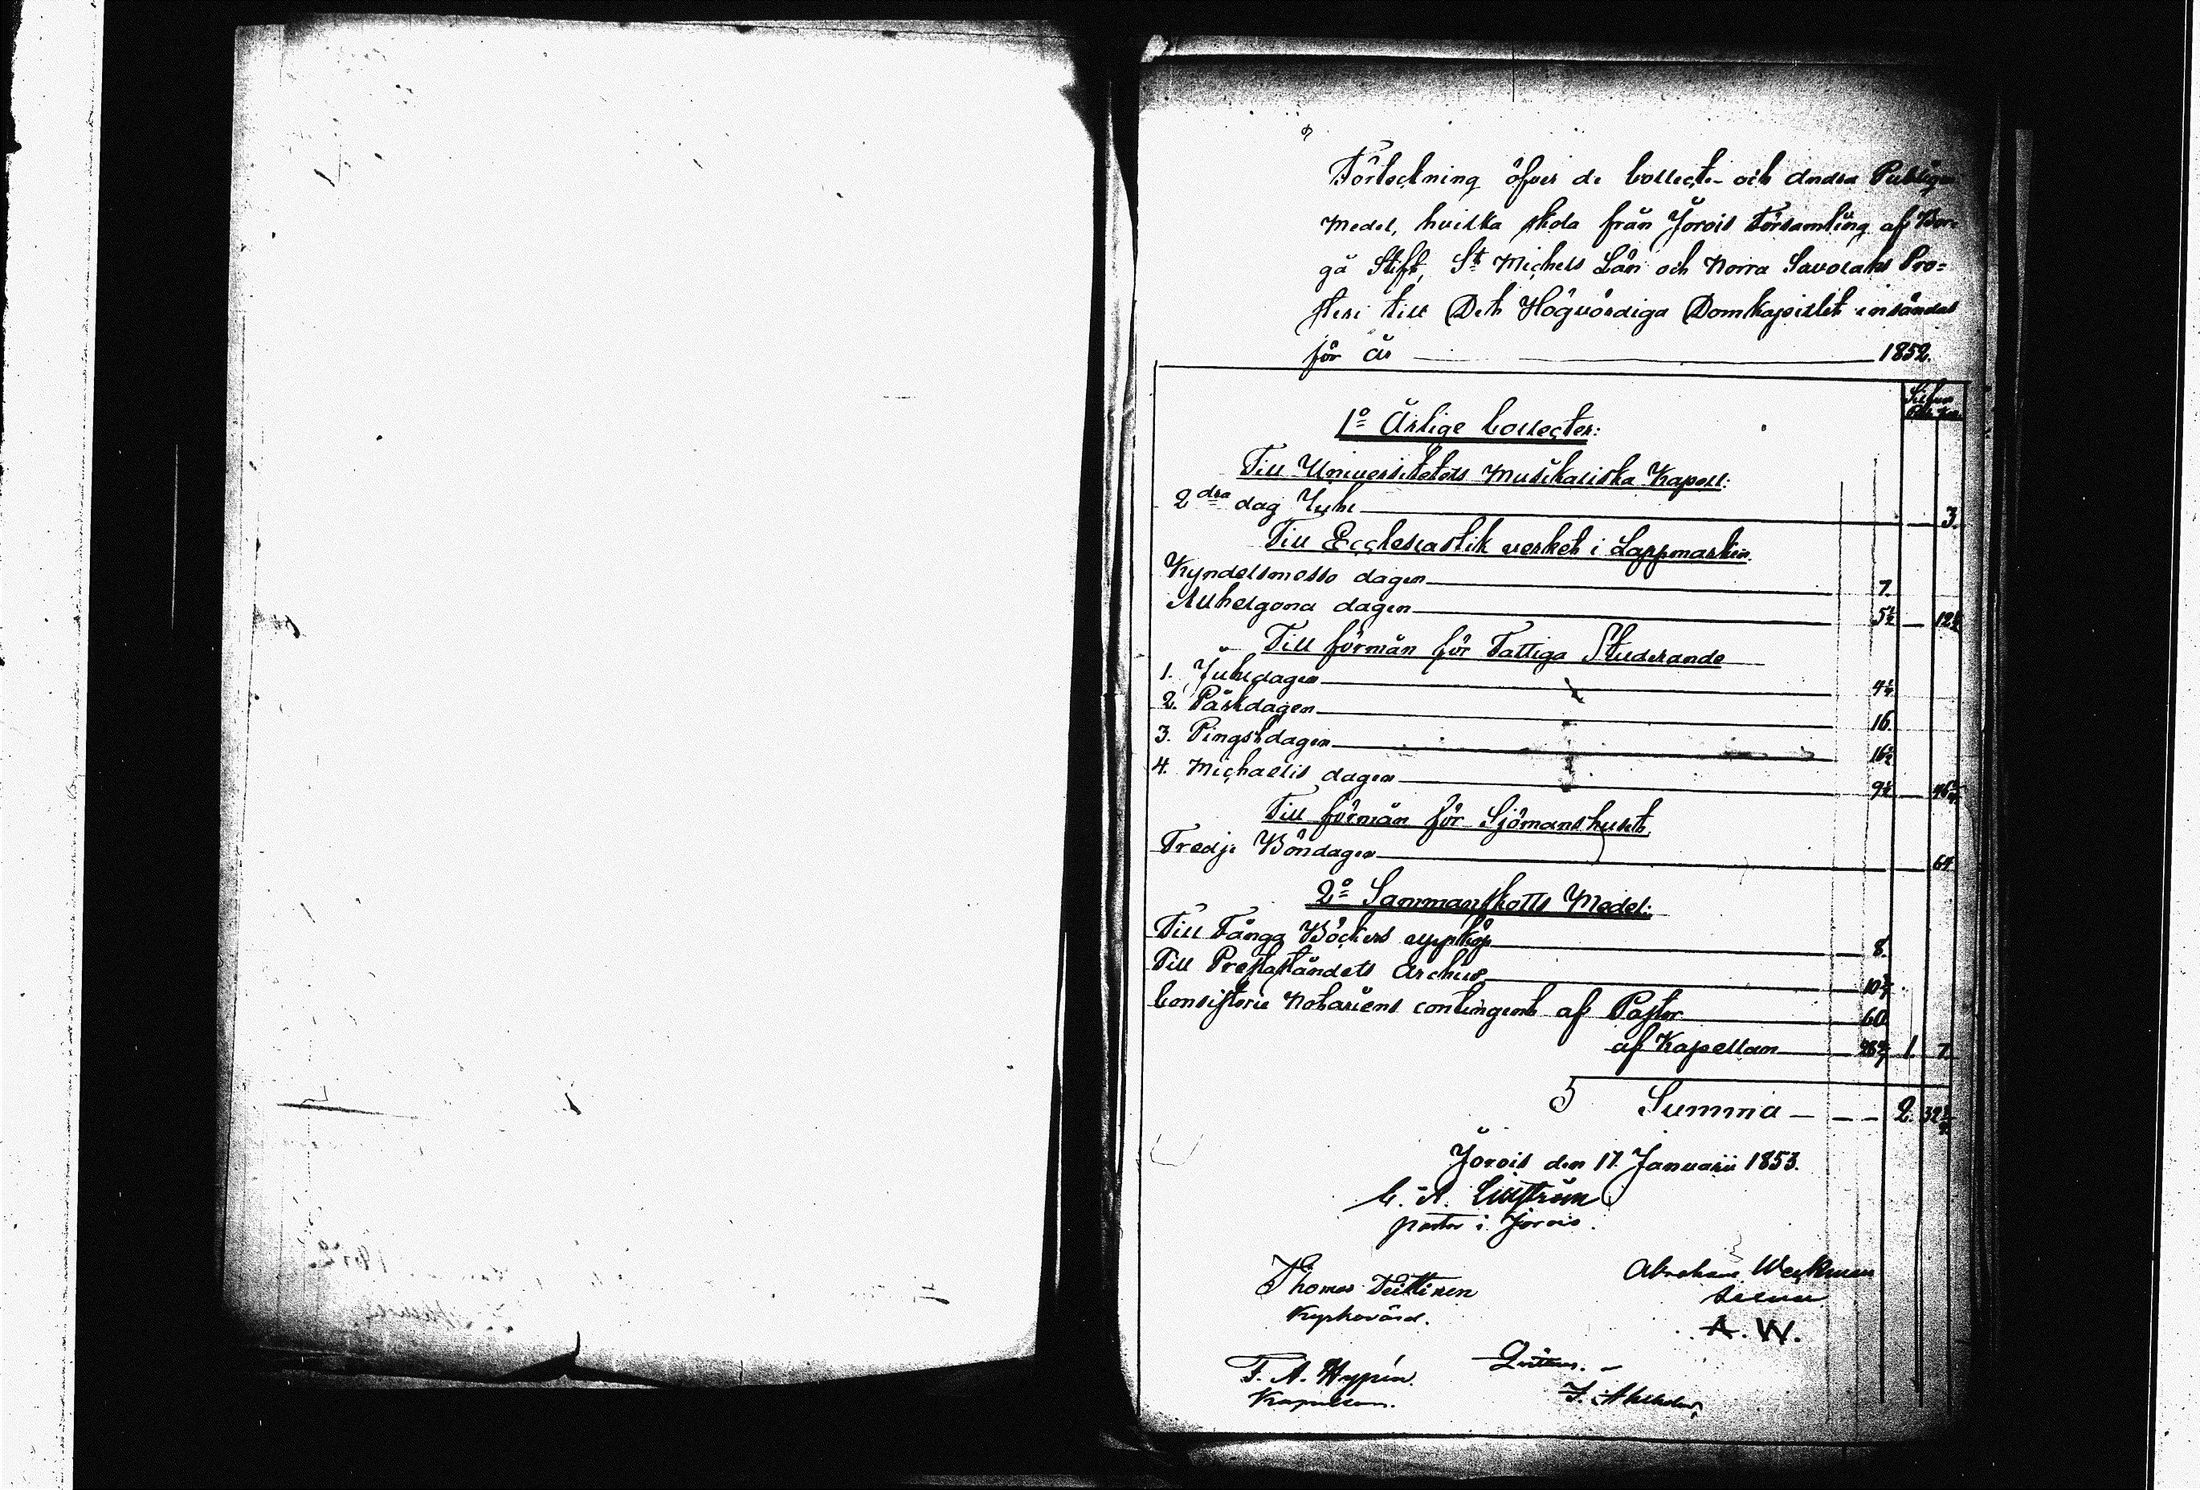 Förteckning öfver de Collect- och andra Publique
Medel, hvilka skola från Jorois Församling af Bor-
gå Stift, S:t Michels Län och Norra Savolaks Pro-
steri till Det Högvördiga Domkapitlet insändas
för år 1852.
Silfver
Rub. Kop.
1:o Årlige Collecter:
Till Universitetets Musikaliska Kapell:
2dra dag Jule 3.
Till Ecclesiastik verket i Lappmarken
Kyndelsmesso dagen 7.
Allhelgona dagen 5½ 12½
Till förmån för Fattiga Studerande
1. Juledagen 4¼
2. Påskdagen 16.
3. Pingstdagen 16½
4. Michaelis dagen 9½
Till förmån för Sjömanshuset
Tredje Böndagen
2:o Sammanskotts Medel:
Till Fånga Böckers uppköp 8.
Till Prestaståndets Archiv
Consistorie Notariens contingent af Pastor 60
af Kapellan 1. 7
Summa 2.
Jorois den 17. Januarii 1853.
C. A.
pastor i Jorois.
Thomas Teittinen
Kyrkovärd.
Abraham Weckman
A. W.
F. A. Hypén.
Kapellan.